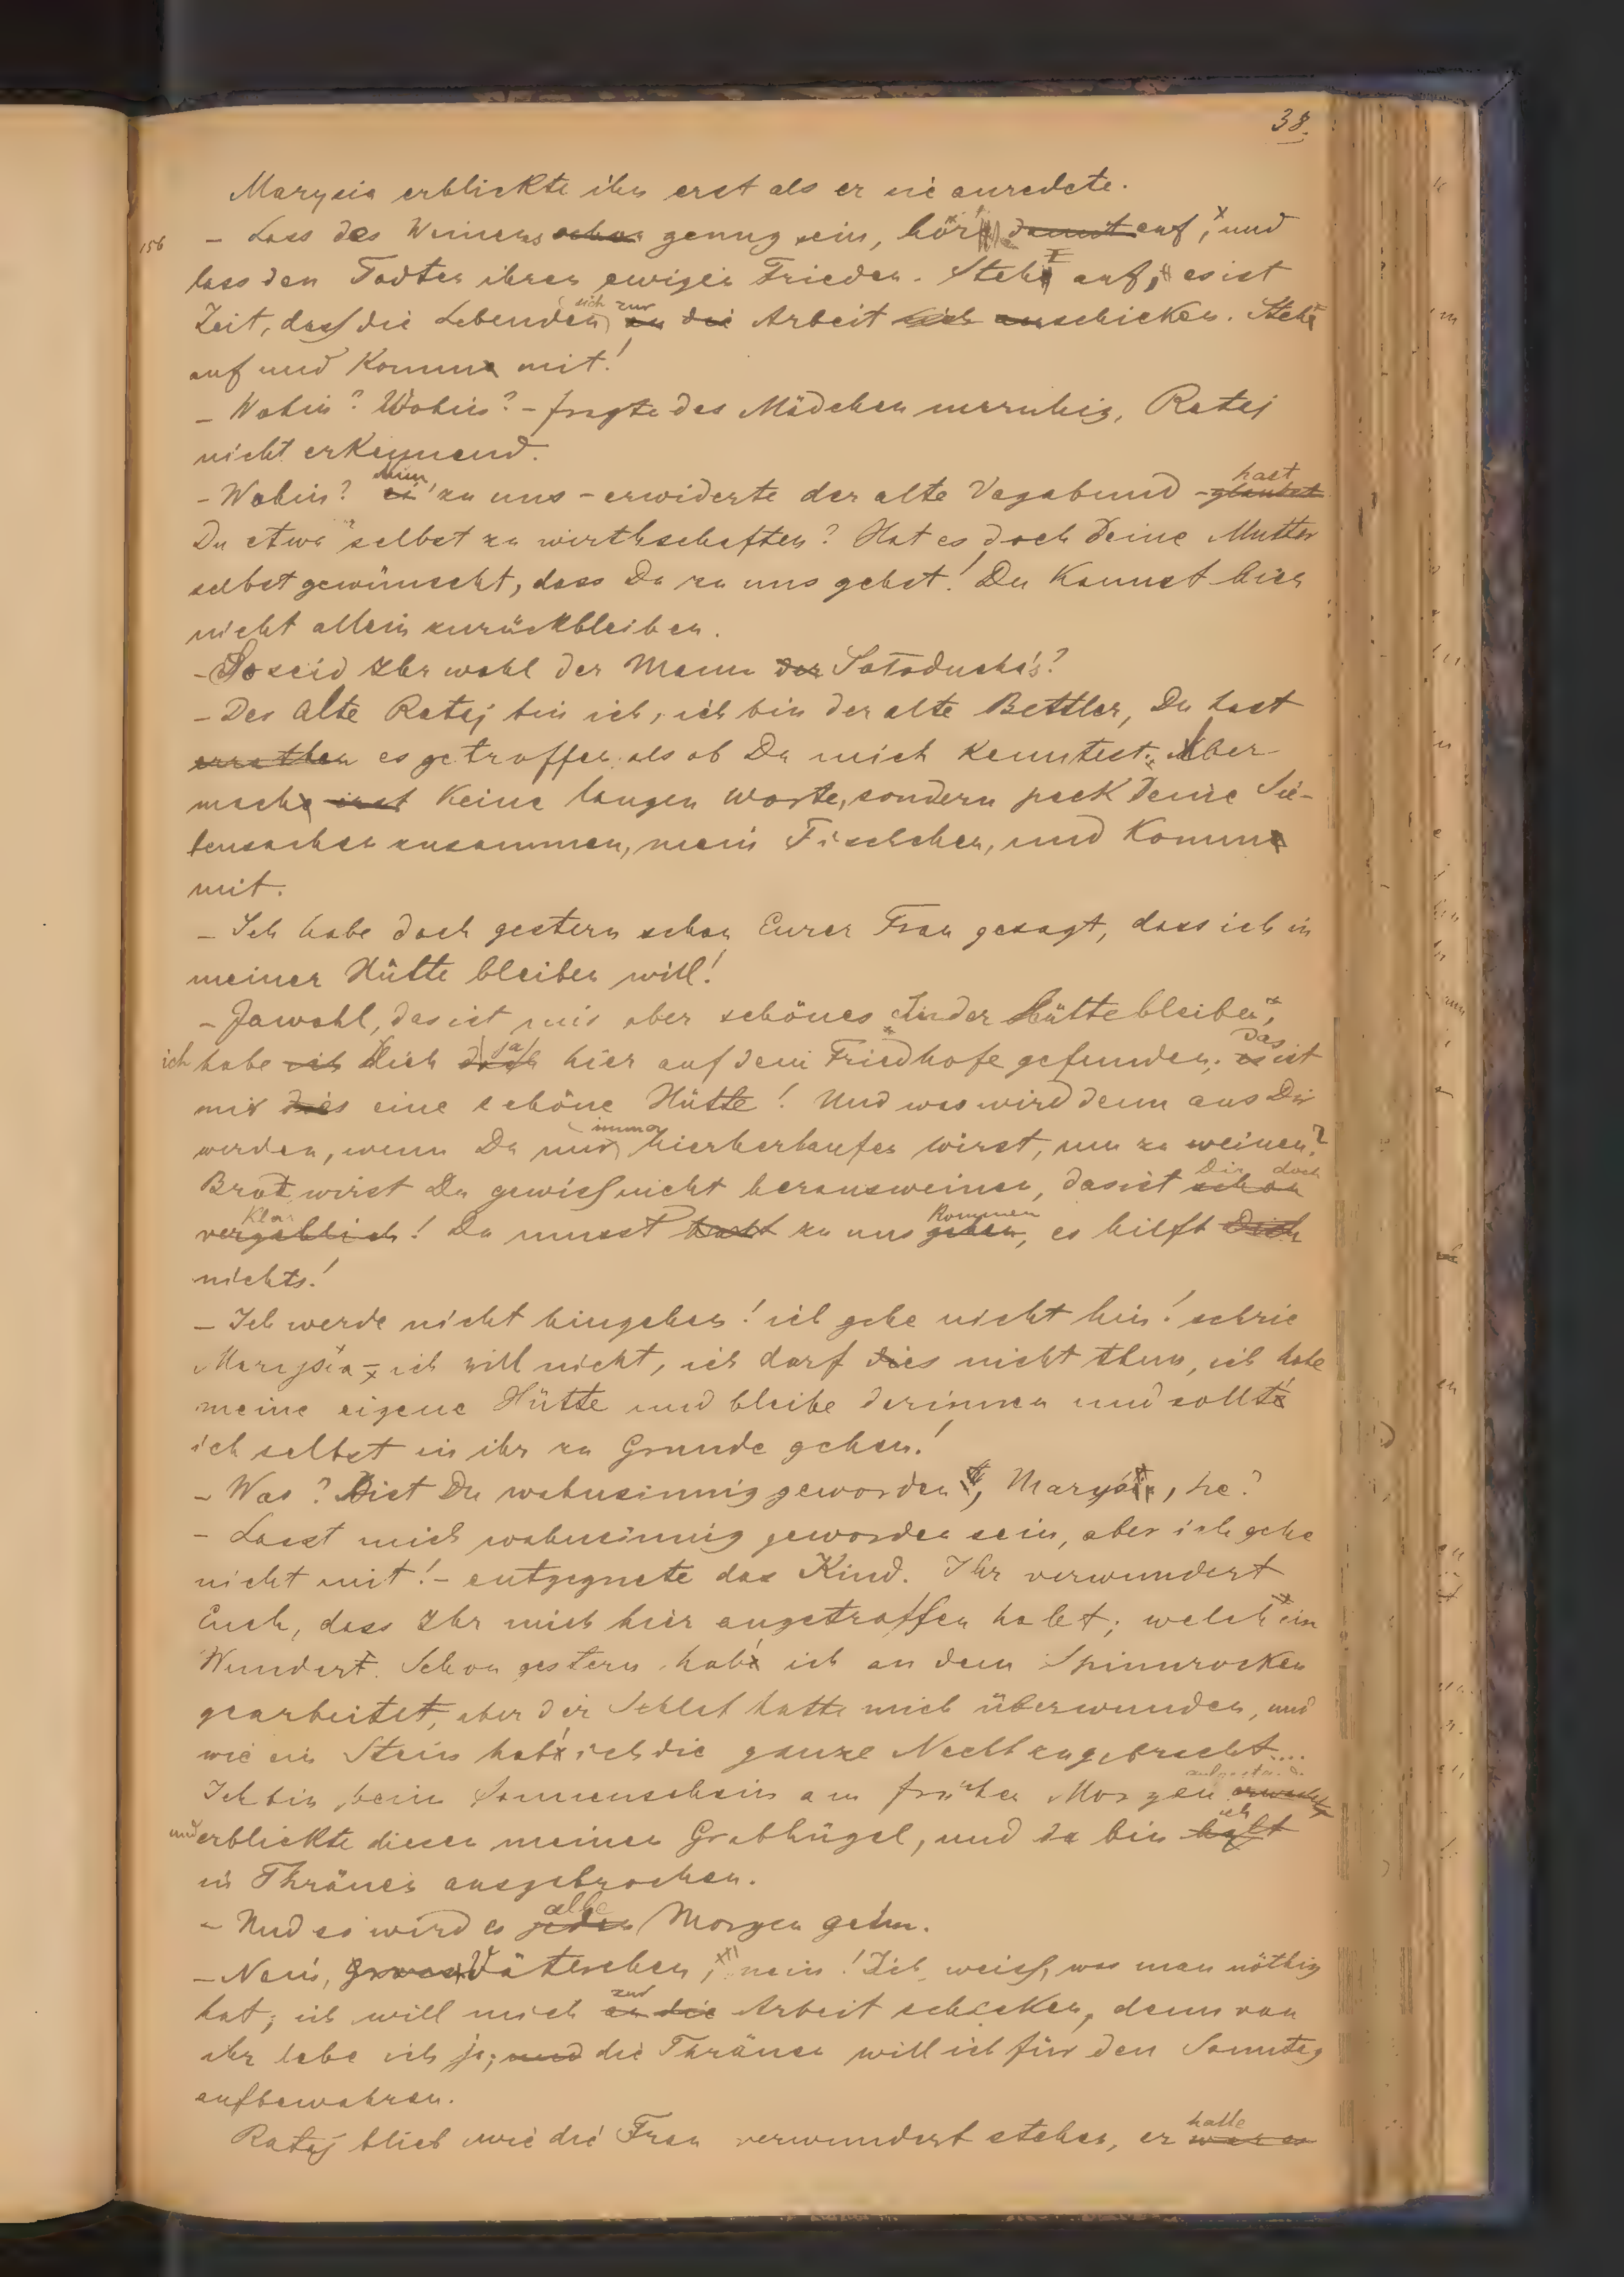 38.
Marysia erblickte ihn erst als er sie anredete.
156 – Lass des Weinens schon genug sein, hör damit auf, und
lass den Todten ihren ewigen Frieden. Steh auf, es ist
sich zur
Zeit, dass die Lebenden an die Arbeit sich anschicken. Steh
auf und komm mit!
– Wohin? Wohin? – fragte das Mädchen unruhig, Rataj
nicht erkennend.
nun hast
– Wohin? ei zu uns – erwiderte der alte Vagabund – glaubst
Du etwa selbst zu wirthschaften? Hat es doch Deine Mutter
selbst gewünscht, dass Du zu uns gehst! Du kannst hier
nicht allein zurückbleiben.
– So seid Ihr wohl der Mann der Satoducha's?
– Der alte Rataj bin ich, ich bin der alte Bettler, Du hast
errathen es getroffen als ob Du mich kenntest. Aber
mach erst keine langen Worte, sondern pack Deine Sie-
bensachen zusammen, mein Fischchen, und komm
mit.
– Ich habe doch gestern schon Eurer Frau gesagt, dass ich in
meiner Hütte bleiben will!
– Jawohl, das ist mir aber schönes „In der Hütte bleiben“,
ja Das
ich habe ich Dich doch hier auf dem Friedhofe gefunden; es ist
mir dies eine schöne Hütte! Und was wird denn aus Dir
immer
werden, wenn Du nur hierherlaufen wirst, um zu weinen?
Dir doch
Brot wirst Du gewiss nicht herausweinen, das ist schon
klar kommen
vergeblich! Du musst zu uns gehen, es hilft Dich
nichts!
– Ich werde nicht hingehen! ich gehe nicht hin! schrie
Marysia – ich will nicht, ich darf dies nicht thun, ich habe
meine eigene Hütte und bleibe darinnen und sollt'
ich selbst in ihr zu Grunde gehen!
– Was? Bist Du wahnsinnig geworden, Maryś, he?
– Lasst mich wahnsinnig geworden sein, aber ich gehe
nicht mit! – entgegnete das Kind. Ihr verwundert
Euch, dass Ihr mich hier angetroffen habt; welch ein
Wunder. Schon gestern hab' ich an dem Spinnrocken
gearbeitet, aber der Schlaf hatte mich überwunden, und
wie ein Stein hab' ich die ganze Nacht zugebracht....
Ich bin beim Sonnenschein am frühen Morgen erwacht
ich
und erblickte diesen meinen Grabhügel, und da bin
in Thränen ausgebrochen.
alle
– Und so wird es jeden Morgen gehn.
– Nein, Grossväterchen, nein! Ich weiss, was man nöthig
zur
hat; ich will mich an die Arbeit schicken, denn von
ihr lebe ich ja; und die Thränen will ich für den Sonntag
aufbewahren.
hatte
Rataj blieb wie die Frau verwundert stehen, er war es